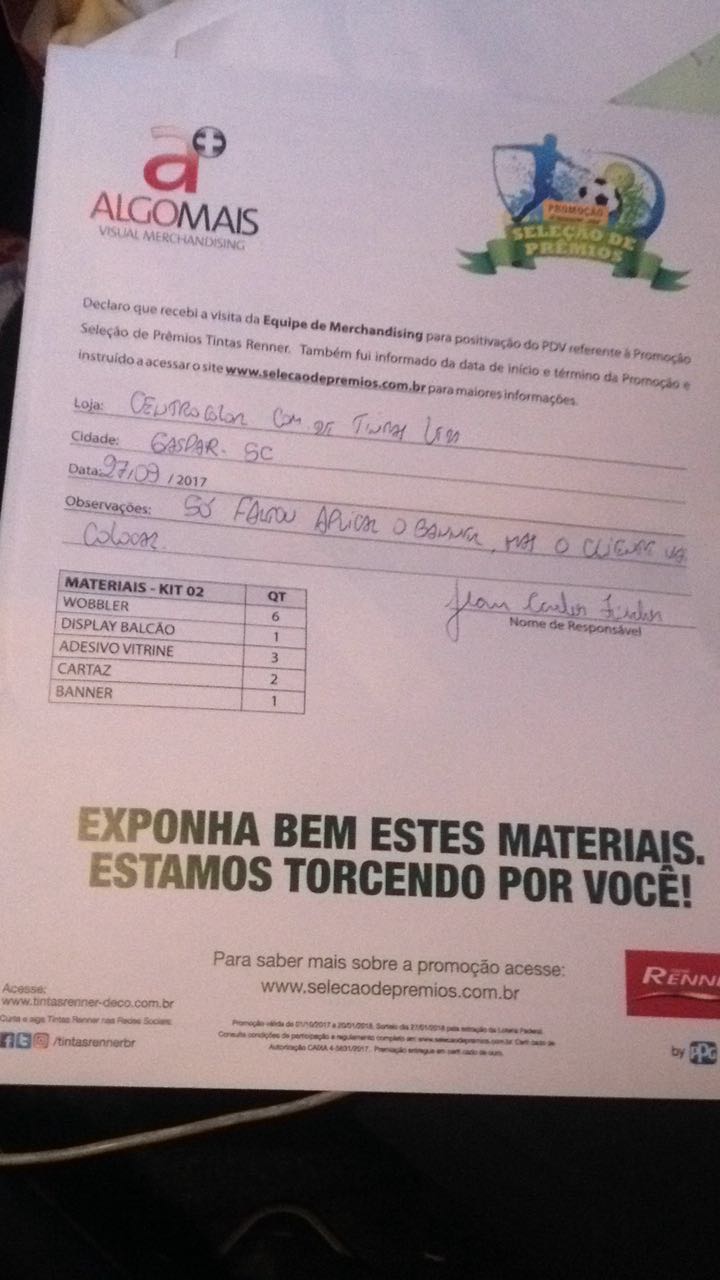 a+
ALGOMAIS
VISUAL MERCHANDISING
PROMOÇÃO
SELEÇÃO DE
PRÊMIOS
Declaro que recebi a visita da Equipe de Merchandising para positivação do PDV referente à Promoção
Seleção de Prêmios Tintas Renner. Também fui informado da data de início e término da Promoção e
instruído a acessar o site www.selecaodepremios.com.br para maiores informações.
Loja: CENTROCOLOR COM DE TINTAS LTDA
Cidade: GASPAR - SC
Data: 27/09 / 2017
Observações: SÓ FALTOU APLICAR O BANNER, MAS O CLIENTE VAI
COLOCAR.
MATERIAIS - KIT 02 QT
WOBBLER 6
DISPLAY BALCÃO 1
ADESIVO VITRINE 3
CARTAZ 2
BANNER 1
Jean Carlos
Nome de Responsável
EXPONHA BEM ESTES MATERIAIS.
ESTAMOS TORCENDO POR VOCÊ!
Para saber mais sobre a promoção acesse:
www.selecaodepremios.com.br
RENN
Acesse:
www.tintasrenner-deco.com.br
Curta e siga Tintas Renner nas Redes Sociais:
/tintasrennerbr
Promoção válida de 01/10/2017 a 20/01/2018. Sorteio dia 27/01/2018 pela extração da Loteria Federal.
Consulte condições de participação e regulamento completo em: www.selecaodepremios.com.br. Certificado de
Autorização CAIXA 4-5631/2017. Premiação entregue em certificado de ouro.
by PPG